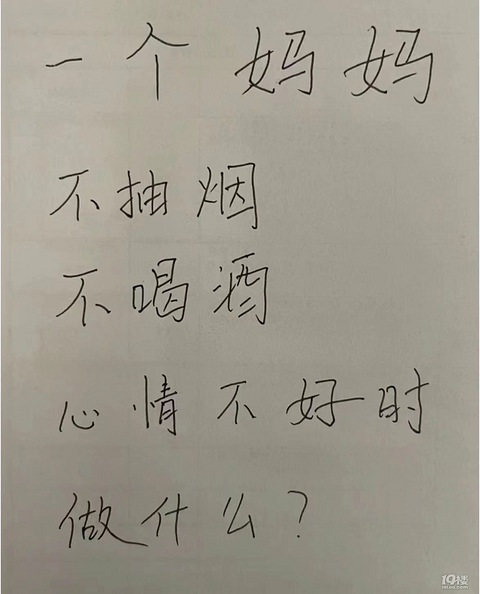 一个 妈妈
不抽烟
不喝酒
心情不好时
做什么?
19楼